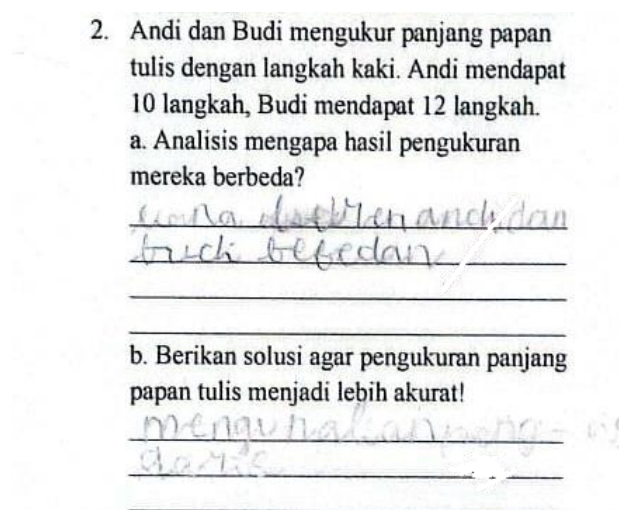 2. Andi dan Budi mengukur panjang papan
tulis dengan langkah kaki. Andi mendapat
10 langkah, Budi mendapat 12 langkah.
a. Analisis mengapa hasil pengukuran
mereka berbeda?
andi dan
budi bebedan
b. Berikan solusi agar pengukuran panjang
papan tulis menjadi lebih akurat!
mengunakan peng-
garis